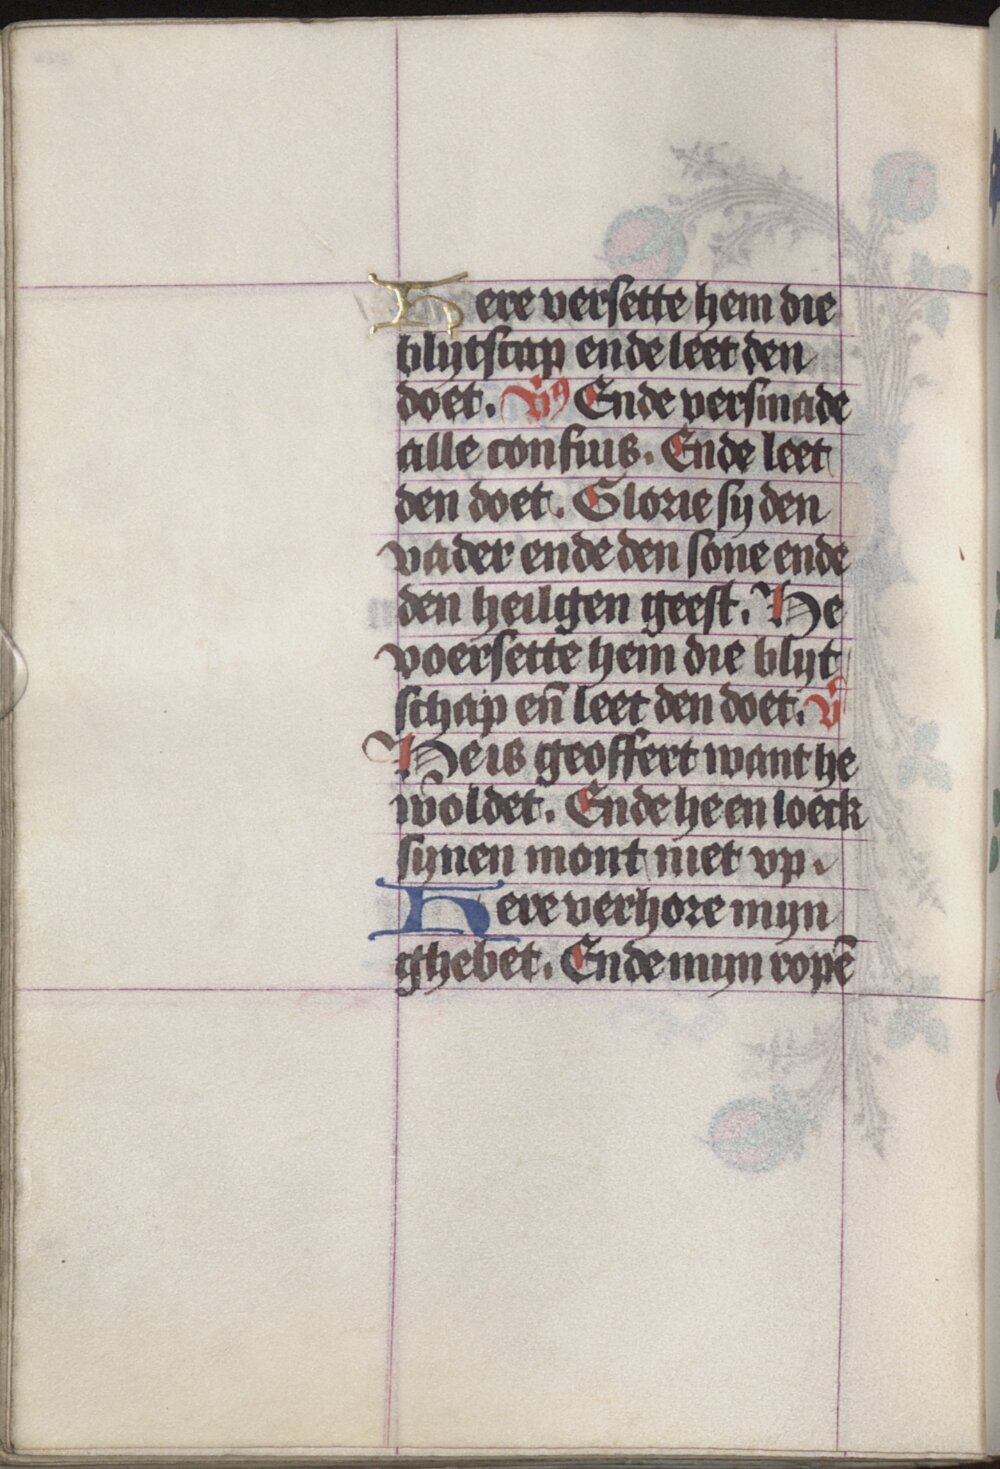 Here versette hem die
blijtscap ende leet den
doet. V9 Ende versmade
alle confuus. Ende leet
den doet. Glorie sij den
vader ende den sone ende
den heiligen geest. He
voersette hem die blijt
schap en̄ leet den doet. V̄
He is geoffert want he
woldet. Ende he en loeck
sijnen mont niet vp.
Here verhore mijn
ghebet. Ende mijn ropē